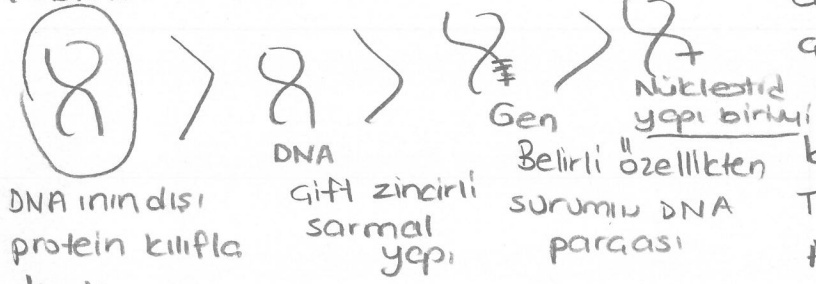 DNA ının dışı
protein kılıfla
DNA
Çift zincirli
sarmal
yapı
Gen
Belirli özellikten
surumlu DNA
parçası
Nükleotid
yapı birimi